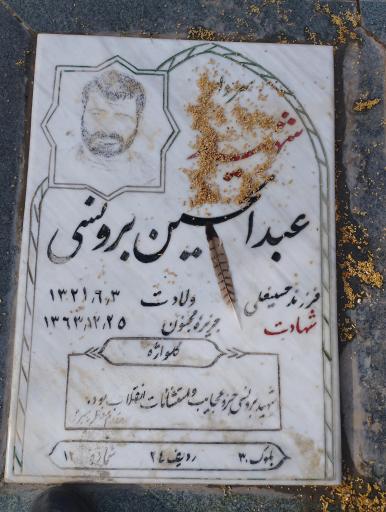 سردار
شهید
عبدالحسین برونسی
فرزند حسینعلی ولادت ۱۳۲۱٫۶٫۳
شهادت جزیرهٔ مجنون ۱۳۶۳٫۱۲٫۲۵
گلواژه
شهید برونسی جزو عجایب و استثنائات انقلاب بود.
بلوک ۳۰ ردیف ۲۴ شماره